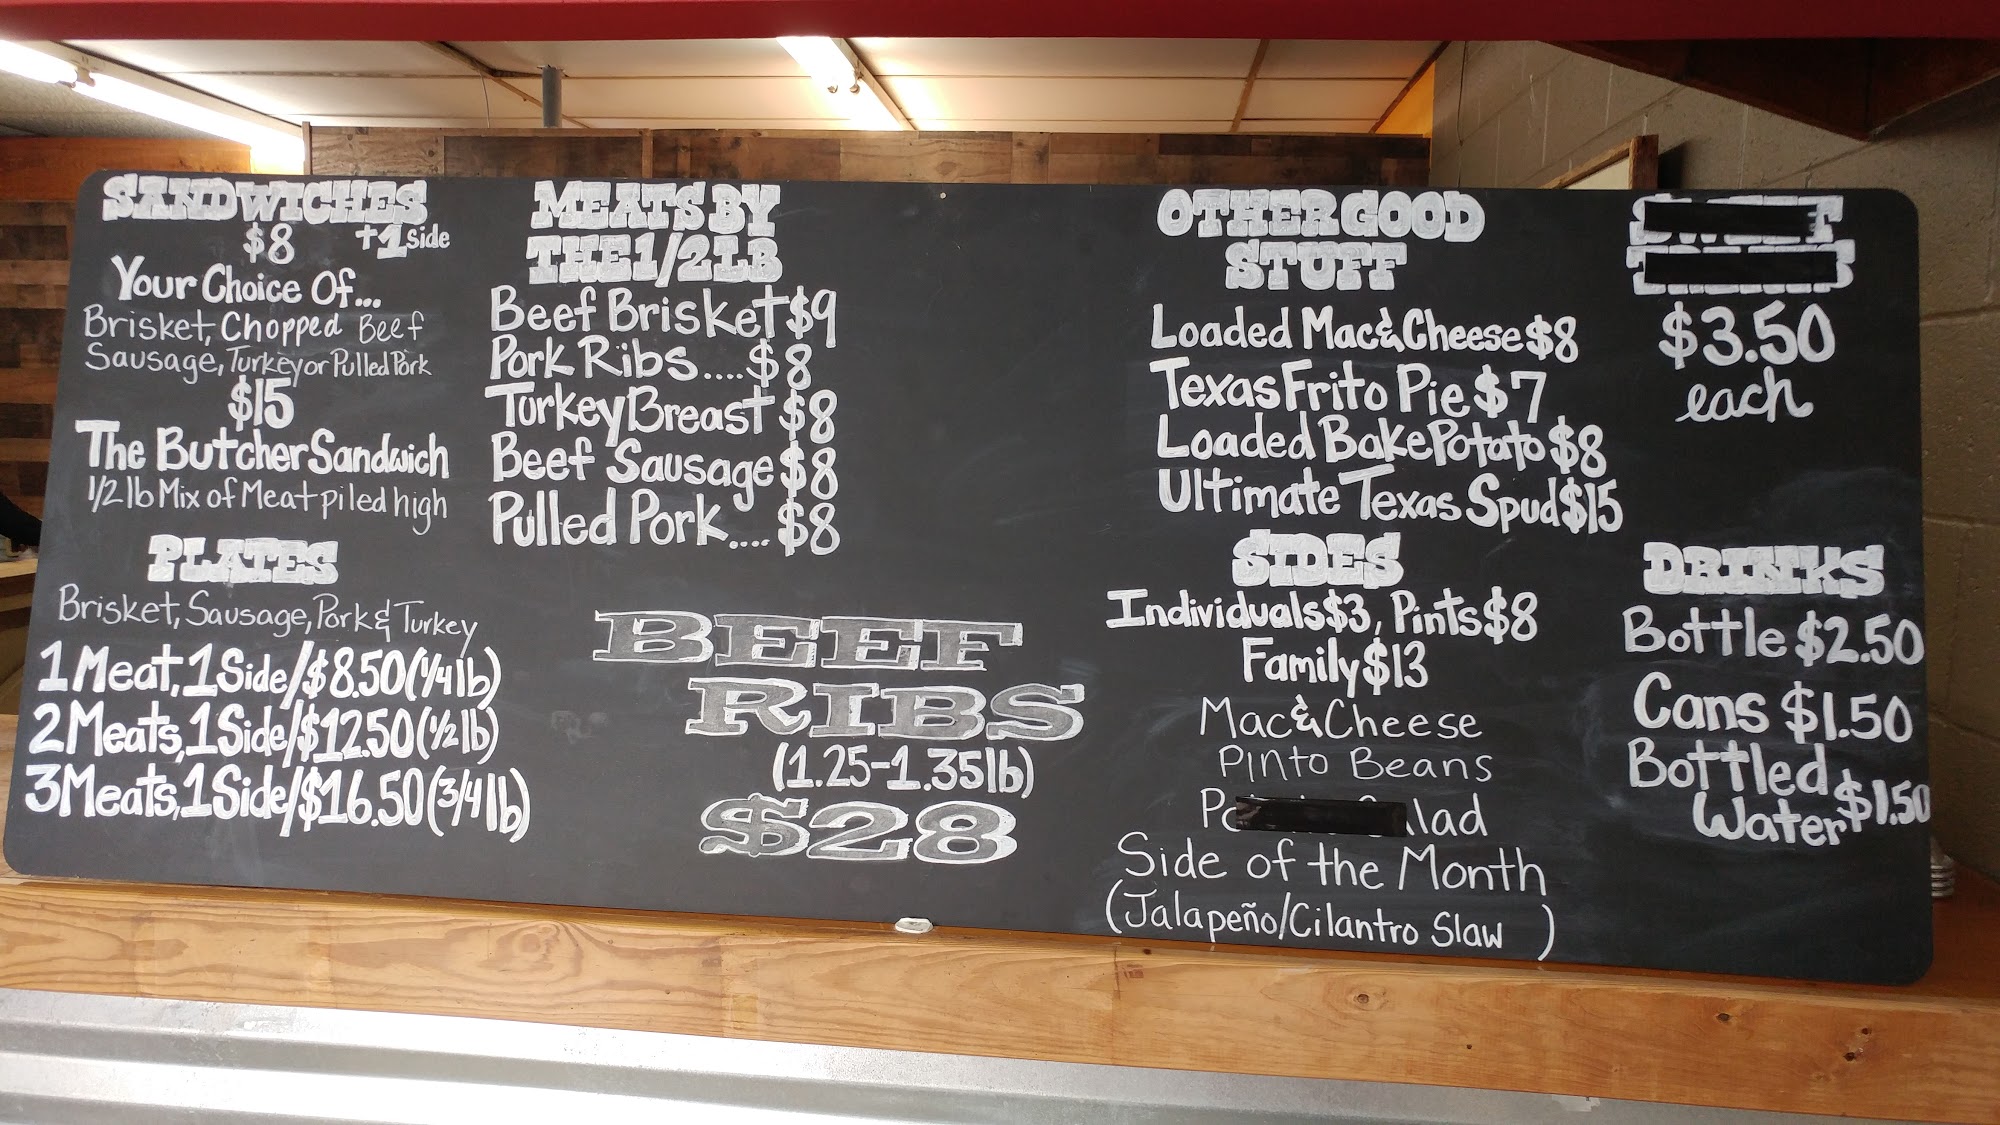 SANDWICHES
$8 +1 side
Your Choice Of...
Brisket, Chopped Beef
Sausage, Turkey or Pulled Pork
$15
The Butcher Sandwich
1/2 lb Mix of Meat piled high
PLATES
Brisket, Sausage, Pork & Turkey
1 Meat, 1 Side/$8.50 (1/4 lb)
2 Meats, 1 Side/$12.50 (1/2 lb)
3 Meats, 1 Side/$16.50 (3/4 lb)
MEATS BY
THE 1/2 LB
Beef Brisket $9
Pork Ribs....$8
Turkey Breast $8
Beef Sausage $8
Pulled Pork.... $8
BEEF
RIBS
(1.25-1.35lb)
$28
OTHER GOOD
STUFF
Loaded Mac & Cheese $8
Texas Frito Pie $7
Loaded Bake Potato $8
Ultimate Texas Spud $15
SIDES
Individuals $3, Pints $8
Family $13
Mac & Cheese
Pinto Beans
Side of the Month
(Jalapeño/Cilantro Slaw )
$3.50
each
DRINKS
Bottle $2.50
Cans $1.50
Bottled
Water $1.50